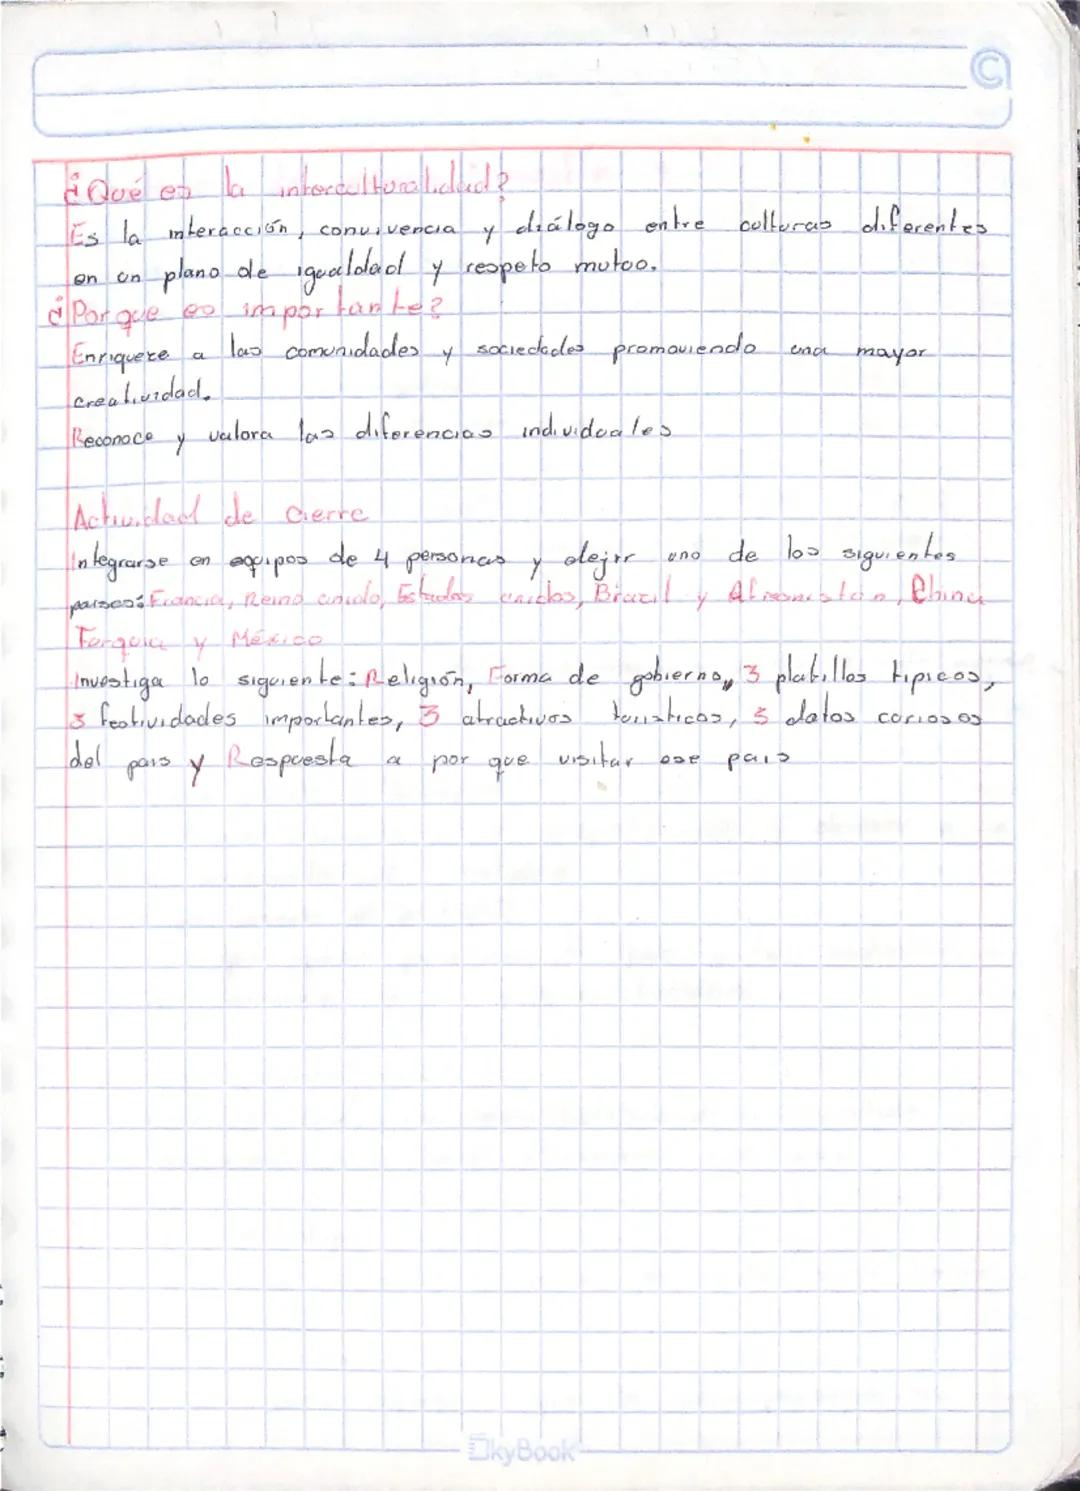 ¿Qué es la interculturalidad?
Es la interacción, convivencia y diálogo entre culturas diferentes
en un plano de igualdad y respeto mutuo.
¿Por que es importante?
Enriqueze a las comunidades y sociedades promoviendo una mayor
creatividad.
Reconoce y valora las diferencias individuales
Actividad de cierre
Integrarse en equipos de 4 personas y elejir uno de los siguientes
paises: Francia, Reino unido, Estados unidos, Brazil y Afganistán, China
Turquia y México
Investiga lo siguiente: Religión, Forma de gobierno, 3 platillos tipicos,
3 festividades importantes, 3 atractivos turisticos, 5 datos curiosos
del pais y Respuesta a por que visitar ese pais
SkyBook